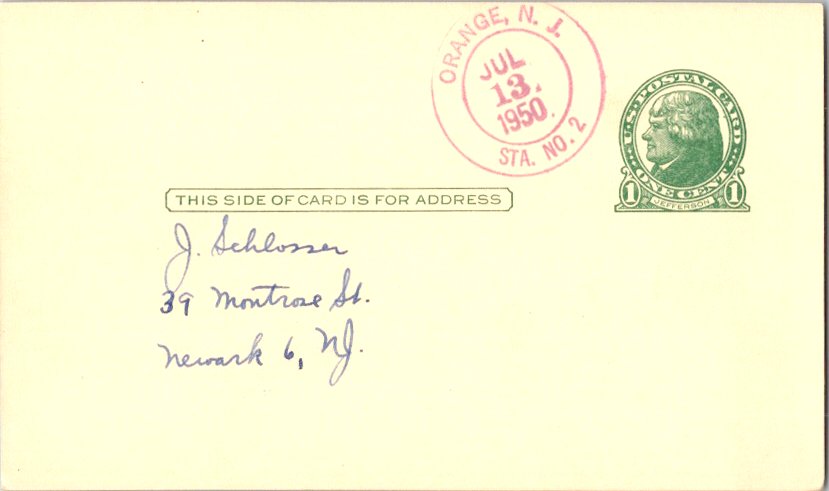 ORANGE, N. J.
JUL
13.
1950.
STA. NO. 2
U.S. POSTAL CARD
ONE CENT
1 1
JEFFERSON
THIS SIDE OF CARD IS FOR ADDRESS
J. Schlosser
39 Montrose St.
Newark 6, NJ.